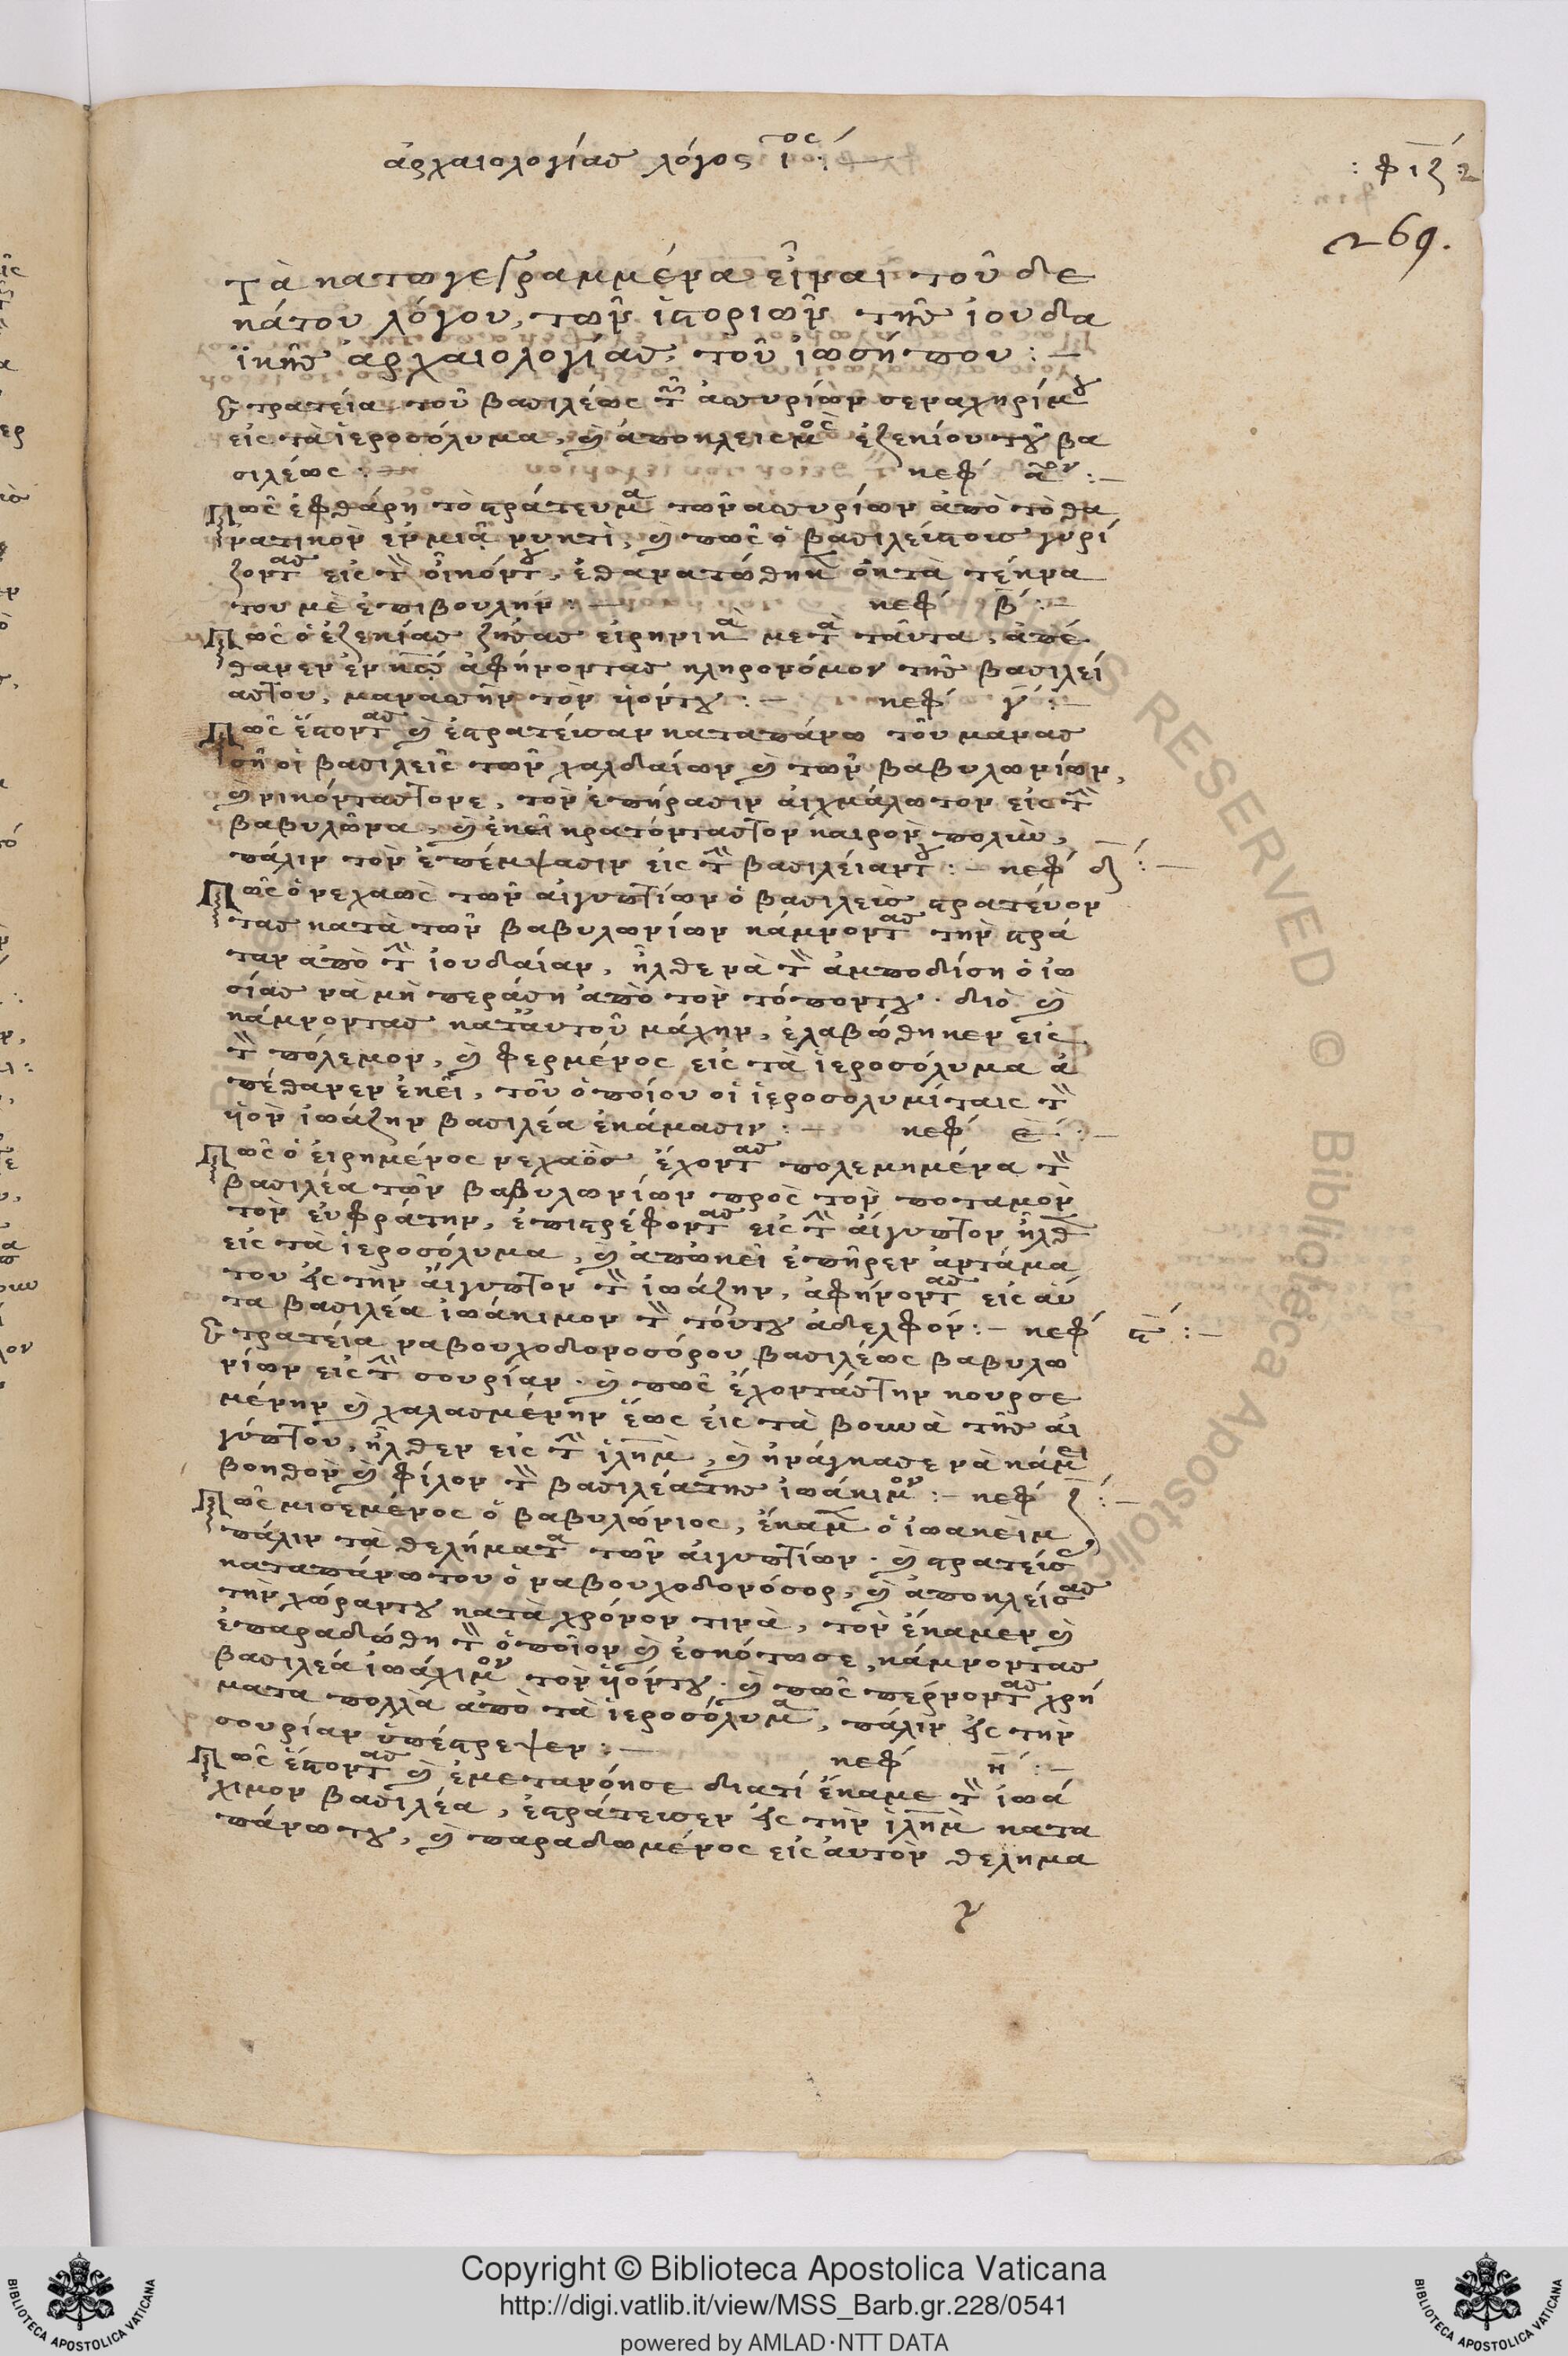 ἀρχαιολογίας λόγος ι^ος :—
: φιζ :
269.
Τὰ κατωγεγραμμένα εἶναι τοῦ δε
κάτου λόγου, τῶν ἱστοριῶν τῆς ἰουδα
ϊκῆς ἀρχαιολογίας, τοῦ ἰωσήπου :—
Στρατεία τοῦ βασιλέως τῶν ἀσυρίων σεναχηρίμου
εἰς τὰ ἱεροσόλυμα, καὶ ἀποκλεισμὸς ἐζεκίου τοῦ βα
σιλέως :— κεφ α^ον :—
Πῶς ἐφθάρη τὸ στράτευμα τῶν ἀσυρίων ἀπὸ τὸ θα
νατικὸν ἐν μιᾷ νυκτὶ, καὶ πῶς ὁ βασιλεύς τους γυρί
ζοντας εἰς τὸν οἶκόν του, ἐθανατώθηκεν ὀκ τὰ τέκνα
του μὲ ἐπιβουλήν :— κεφ β :—
Πῶς ὁ ἐζεκίας ζήσας εἰρηνικὰ μετὰ ταῦτα, ἀπέ
θανεν ἀφήνοντας κληρονόμον τῆς βασιλεί
ας του, μανασῆν τὸν ἱόν του :— κεφ γ :—
Πῶς ἔστοντας καὶ ἐστράτευσαν καταπάνω τοῦ μανασ
σῆ οἱ βασιλεῖς τῶν χαλδαίων καὶ τῶν βαβυλωνίων,
καὶ νικόντας τονε, τὸν ἐπήρασιν αἰχμάλωτον εἰς τὴν
βαβυλῶνα, καὶ ἐκεῖ κρατόντας τον καιρὸν πολὺ,
πάλιν τὸν ἐπέμψασιν εἰς τὴν βασιλείαν του :— κεφ δ :—
Πῶς ὁ νεχαὼς τῶν αἰγυπτίων ὁ βασιλεὺς στρατεύον
τας κατὰ τῶν βαβυλωνίων κάμνοντας τὴν στρά
ταν ἀπὸ τὴν ἰουδαίαν, ἦλθε νὰ τὸν ἀμποδίση ὁ ἰω
σίας νὰ μὴ περάση ἀπὸ τὸν τόπον του. διὸ καὶ
κάμνοντας κατ' αὐτοῦ μάχην, ἐλαβώθηκεν εἰς
τὸν πόλεμον, καὶ φερμένος εἰς τὰ ἱεροσόλυμα ἀ
πέθανεν ἐκεῖ, τοῦ ὁποίου οἱ ἱεροσολυμίταις τὸν
ἱὸν ἰωάζην βασιλέα ἐκάμασιν :— κεφ ε :—
Πῶς ὁ εἰρημένος νεχαὸς ἔχοντας πολεμημένα τὸν
βασιλέα τῶν βαβυλωνίων πρὸς τὸν ποταμὸν
τὸν εὐφράτην, ἐπιστρέφοντας εἰς τὴν αἴγυπτον ἦλθεν
εἰς τὰ ἱεροσόλυμα, καὶ ἀπ' ἐκεῖ ἐπῆρεν ἀντάμα
του εἰς τὴν αἴγυπτον τὸν ἰωάζην, ἀφήνοντας εἰς αὐ
τα βασιλέα ἰωάκιμον τὸν τούτου ἀδελφόν :— κεφ ϛ :—
Στρατεία ναβουχοδονοσόρου βασιλέως βαβυλω
νίων εἰς τὴν σουρίαν. καὶ πῶς ἔχοντάς την κουρσε
μένην καὶ χαλασμένην ἕως εἰς τὰ βουνὰ τῆς αἰ
γύπτου, ἦλθεν εἰς τὴν ἰλημ, καὶ ἠνάγκασε νὰ κάμη
βοηθὸν καὶ φίλον τὸν βασιλέα της ἰωάκιμον :— κεφ ζ :—
Πῶς μισεμένος ὁ βαβυλώνιος, ἔκαμεν ὁ ἰωακεὶμ
πάλιν τὰ θελήματα τῶν αἰγυπτίων. καὶ στρατεύσας
καταπάνω του ὁ ναβουχοδονόσορ, καὶ ἀποκλείσας
τὴν χώραν του κατὰ χρόνον τινὰ, τὸν ἔκαμεν καὶ
ἐπαραδώθη τὸν ὁποῖον καὶ ἐσκότωσε, κάμνοντας
βασιλέα ἰωάχιμον τὸν ἱόν του. καὶ πῶς πέρνοντας χρή
ματα πολλὰ ἀπὸ τὰ ἱεροσόλυμα, πάλιν εἰς τὴν
σουρίαν ὑπέστρεψεν :— κεφ η :—
Πῶς ἔστοντας καὶ ἐμετανόησε διατί ἔκαμε τὸν ἰωά
χιμον βασιλέα, ἐστράτευσεν εἰς τὴν ἰλημ κατα
πάνω του, καὶ παραδωμένος εἰς αὐτὸν θελημα
Copyright © Biblioteca Apostolica Vaticana
http://digi.vatlib.it/view/MSS_Barb.gr.228/0541
powered by AMLAD·NTT DATA